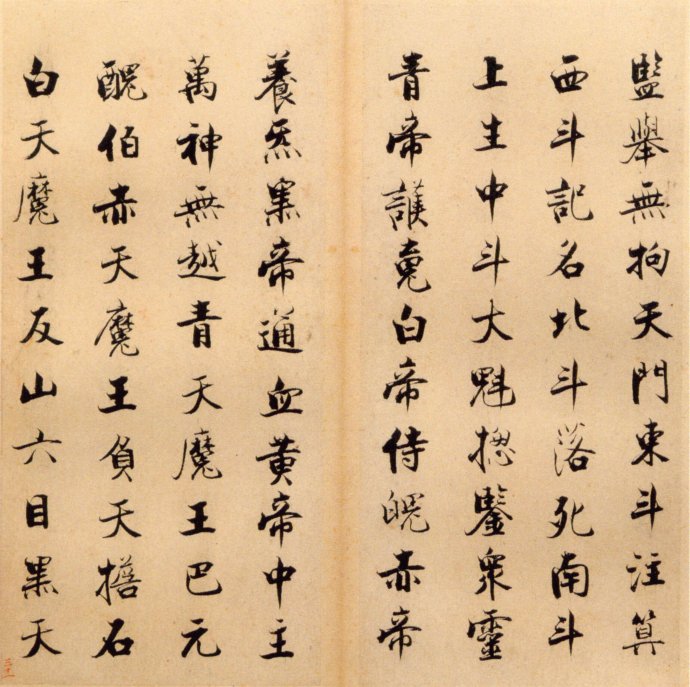 監舉無拘天門東斗注算
西斗記名北斗落死南斗
上生中斗大魁揔鑒衆靈
青帝護䰟白帝侍魄赤帝
養炁黑帝通血黄帝中主
萬神無越青天魔王巴元
醜伯赤天魔王負天擔石
白天魔王反山六目黑天
三十一